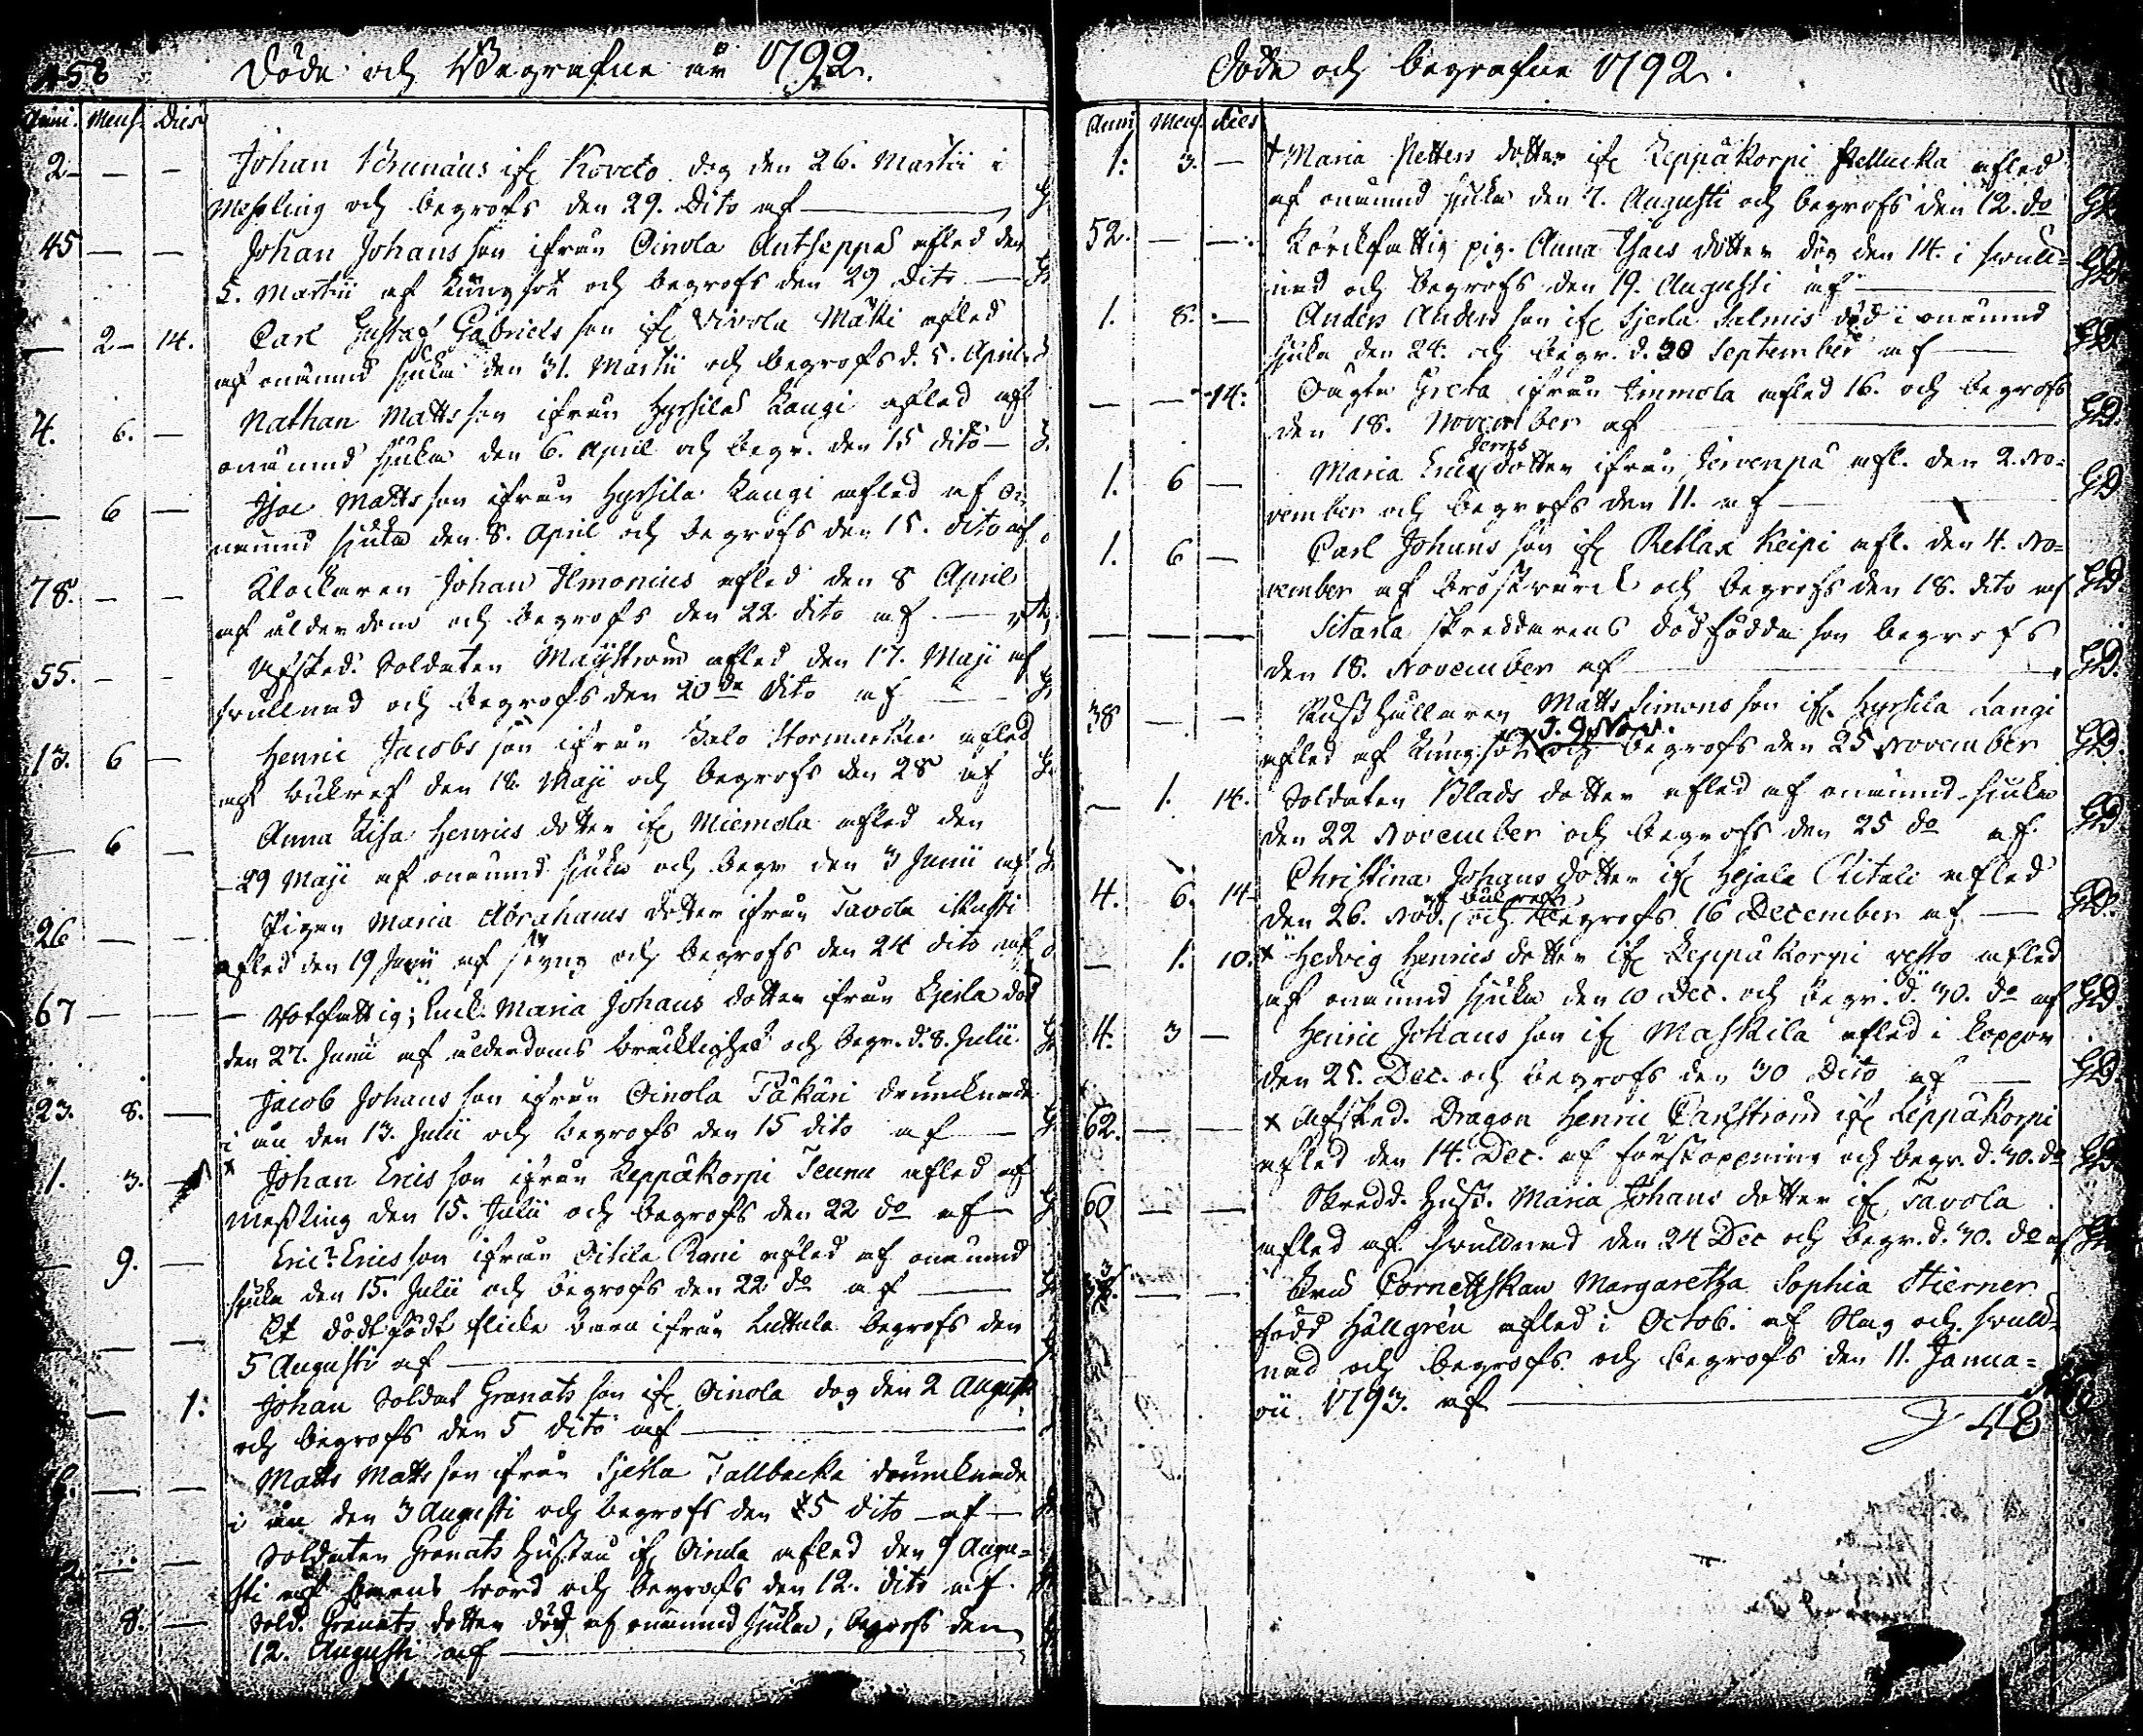 458 Döde och Begrafne år 1792.
Anni. Mens. Dies
2 — — Johan Brunaus ifr Koveto dog den 26. Martii i
Messling och begrofs den 29. Dito af
45 — — Johan Johans son ifrån Oinola Antseppäs afled den
5. Martii af Lungsot och begrofs den 29 dito
— 2 — 14. Carl Gustaf Gabriels son ifr Vivola Mäkki afled
af onämnd sjuka den 31. Martii och begrofs d. 5. April
4. 6. — Nathan Matts son ifrån Hyrsilä Langi afled af
onämnd sjuka den 6. April och begr. den 15 dito
— 6 — Isac Matts son ifrån Hyrsila Langi afled af o-
nämnd sjuka den 8. April och begrofs den 15. dito af
78. — — Klockaren Johan Ilmonius afled den 8 April
af ålderdom och begrofs den 22 dito af
55. — — Afsked. Soldaten Maÿström afled den 17. Maji af
svullnad och begrofs den 20de dito af
13. 6 — Henric Jacobs son ifrån afled
af bukref den 18. Maji och begrofs den 28 af
— 6 — Anna Lisa Henrics dotter ifr Miemola afled den
29 Maji af onämnd sjuka och begr den 3 Junii af
26 — — Pigan Maria Abrahams dotter ifrån Tavola
afled den 19 Junii af och begrofs den 24 dito af
67 — — Rotfattig; Enck. Maria Johans dotter ifrån Gerla död
den 27. Junii af ålderdoms bräcklighet och begr. d. 8. Julii.
23. 8. — Jacob Johans son ifrån Oinola Päkäri drunknade
i ån den 13. Julii och begrofs den 15 dito af
1. 3. — x Johan Erics son ifrån Leppäkorpi Teunu afled af
Messling den 15. Julii och begrofs den 22 do af
— 9. — Eric Ericsson ifrån Oitila Rani afled af onämnd
sjuka den 15. Julii och begrofs den 22 do af
— — Et dödfödt flicke barn ifrån Luttula begrofs den
5 Augusti af
— 1. Johan Soldat Granats son ifr Oinola dog den 2 Augusti
och begrofs den 5 dito af
— — Matts Matts son ifrån Sjerla Tallbacka drunknade
i ån den 3 Augusti och begrofs den 5 dito af
— — Soldaten Granats hustru ifr Oinola afled den 9 Augu-
sti af barns börd och begrofs den 12. dito af.
8. — Sold. Granats dotter död af onämnd sjuka, begrofs den
12. Augusti af
Döde och begrafne 1792.
Anni Mens. dies
1. 3. — + Maria Petters dotter ifr Leppäkorpi afled
af onämnd sjuka den 7. Augusti och begrofs den 12. do
52. — — Körckfattig pig. Anna Isacs dotter dog den 14. i svull-
nad och begrofs den 19. Augusti af
1. 8. — Anders Anders son ifr Sjerla Salmis död i onämnd
sjuka den 24. och begr. d. 30 September af
— — 14. Oägta Greta ifrån Immola afled 16. och begrofs
den 18. November af
1. 6 — Maria dotter ifrån Jervenpä afl. den 2. No-
vember och begrofs den 11. af
1. 6 — Carl Johans son ifr Retlax Keipi afl. den 4. No-
vember af bröstvärck och begrofs den 18. dito af
— — — Sitarla skreddarens dödfödda son begrofs
den 18. November af
38 — — Rusthållaren Matts Simons son ifr Hyrsila Langi
d. 9 Nov.
afled af Lungsot och begrofs den 25 November
— 1. 14. Soldaten Blads dotter afled af onämnd sjuka
den 22 November och begrofs den 25 do af.
4. 6. 14 Christina Johans dotter ifr Hejala Ritali afled
af bukref
den 26. Nov. och begrofs 16 December af
— 1. 10. x Hedvig Henrics dotter ifr Leppäkorpi afled
af onämnd sjuka den 10 Dec. och begr. d. 30. do af
4. 3 — Henric Johans son ifr Maskila afled i koppor
den 25. Dec. och begrofs den 30 Dito af
62. — — x Afsked. Dragon Henric Carlström ifr Leppäkorpi
afled den 14 Dec. af förstoppning och begr. d. 30. do
60 — — Skredd. Hust. Maria Johans dotter ifr Tavola
afled af svullnad den 24 Dec och begr. d. 30. do af
— — Cornettskan Margaretha Sophia Stierner
född Hällgrén afled i Octob. af Slag och svull-
nad och begrofs och begrofs den 11. Janua-
rii 1793. af
48